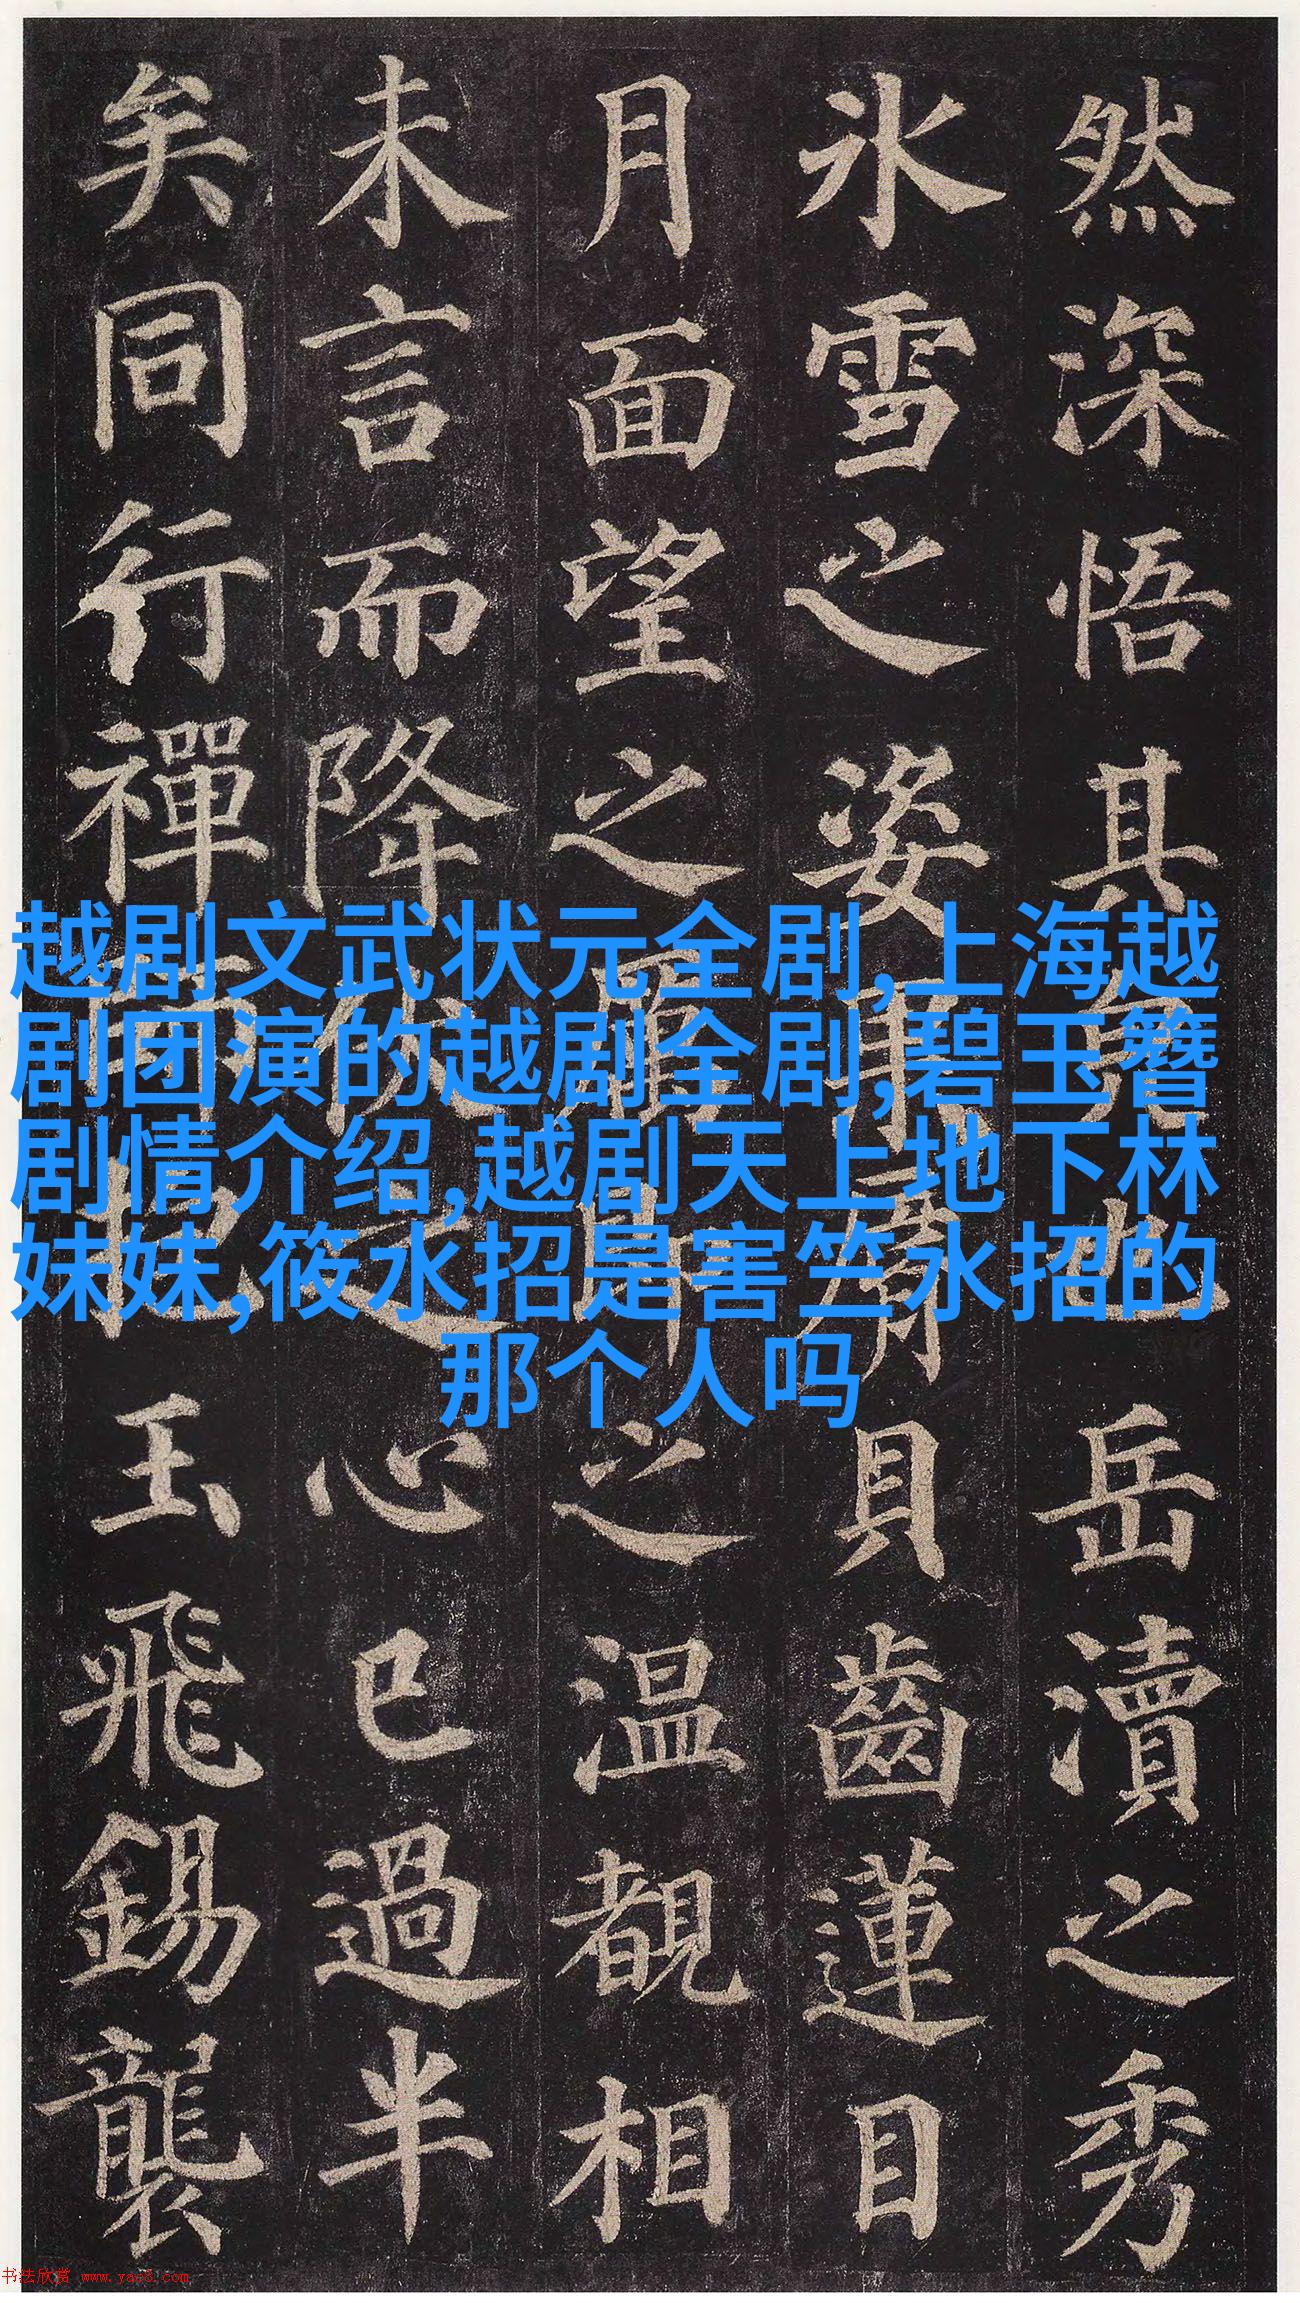 然深悟其也岳瀆之秀
氷雪之姿貝齒蓮目
月面望之之温覩相
未言而降伏之心已過半
矣同行禪師抱玉飛錫襲
越剧文武状元全剧,上海越
剧团演的越剧全剧,碧玉簪
剧情介绍,越剧天上地下林
妹妹,筱水招是害竺水招的
那个人吗
书法欣赏 www.yac8.com